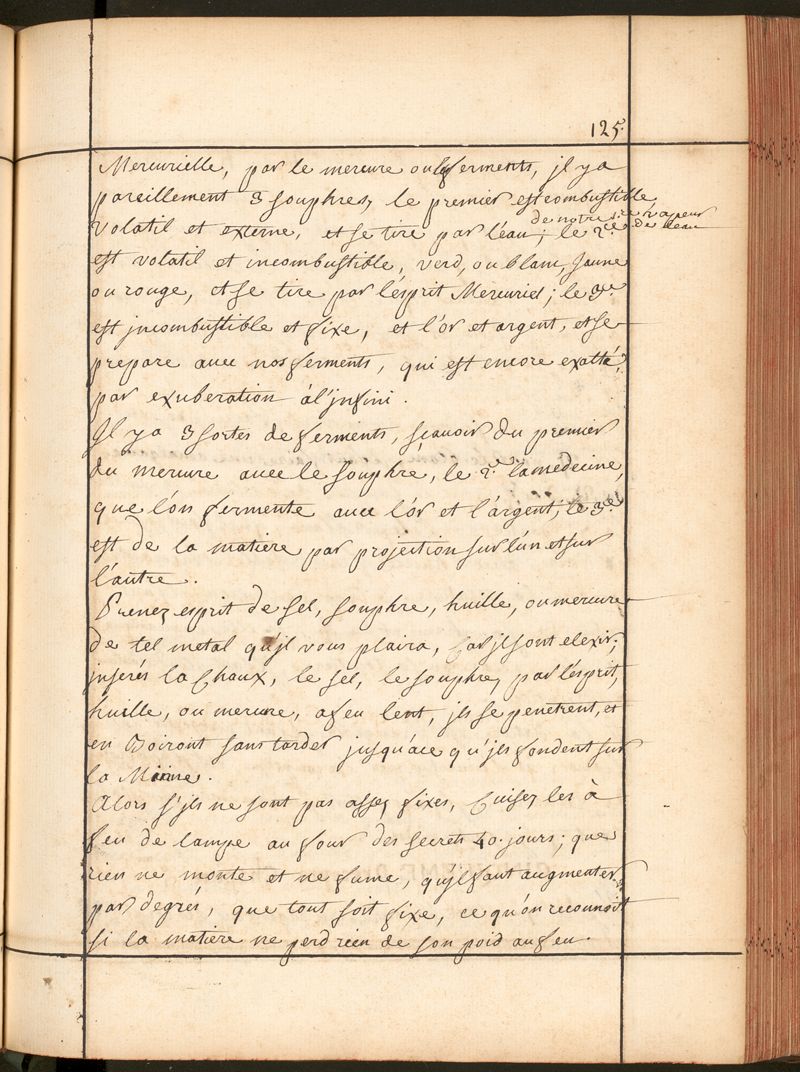 125.
Mercurielle, par le mercure ou ferments, jl y a
pareillement 3 souphres, le premier est combustible
volatil et externe, et se tire par l'eau; le 2.e
de notre vapeur
de l'eau
est volatil et incombustible, verd, ou blanc, Jaune
ou rouge, et se tire par l'esprit Mercuriel; le 3.e
est jncombustible et fixe, et l'or et argent, et se
prepare auec nos ferments, qui est encore exalté,
par exuberation à l'jnfini.
Jl y a 3 sortes de ferments, sçauoir du premier
du mercure auec le souphre, le 2.e la medecine,
que l'on fermente auec l'or et l'argent; le 3.e
est de la matiere par projection sur l'un et sur
l'autre.
Prenez esprit de sel, souphre, huille, ou mercure
de tel metal qu'jl vous plaira, Car jls sont elexir;
jnserés la Chaux, le sel, le souphre, par l'esprit,
huille, ou mercure, a feu lent, jls se penetrent, et
en Boiront sans tarder jusqu'a ce qu'jls fondent sur
la
Alors s'jls ne sont pas assez fixes, Cuisez les à
feu de lampe au four des secrets 40. jours; que
rien ne monte et ne fume, qu'jl faut augmenter
par degrés, que tout soit fixe, ce qu'on reconnoist
si la matiere ne perd rien de son poid au feu.